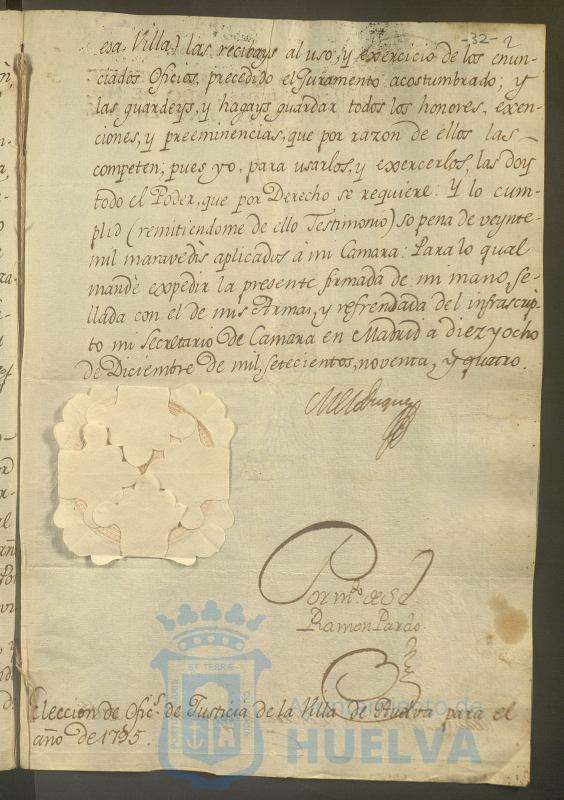 -32-
esa Villa) las recibays al uso, y exercicio de los enun-
ciados Oficios, precedido el Juramento acostumbrado; y
las guardeys, y hagays guardar todos los honores, exen-
ciones, y preeminencias, que por razon de ellos las
competen, pues yo, para usarlos, y exercerlos, las doy
todo el Poder, que por Derecho se requiere: Y lo cum-
plid (remitiendome de ello Testimonio) so pena de veynte
mil maravedis aplicados à mi Camara: Para lo qual
mandè expedir la presente firmada de mi mano, se-
llada con el de mis Armas, y refrendada del infrascrip-
to mi Secretario de Camara en Madrid a diez y ocho
de Diciembre de mil, setecientos, noventa, y quatro.
Por m.do de S E
Ramon Pardo
Eleccion de Ofic.s de Justicia de la Villa de Huelva para el
año de 1795.
Ayuntamiento de
HUELVA